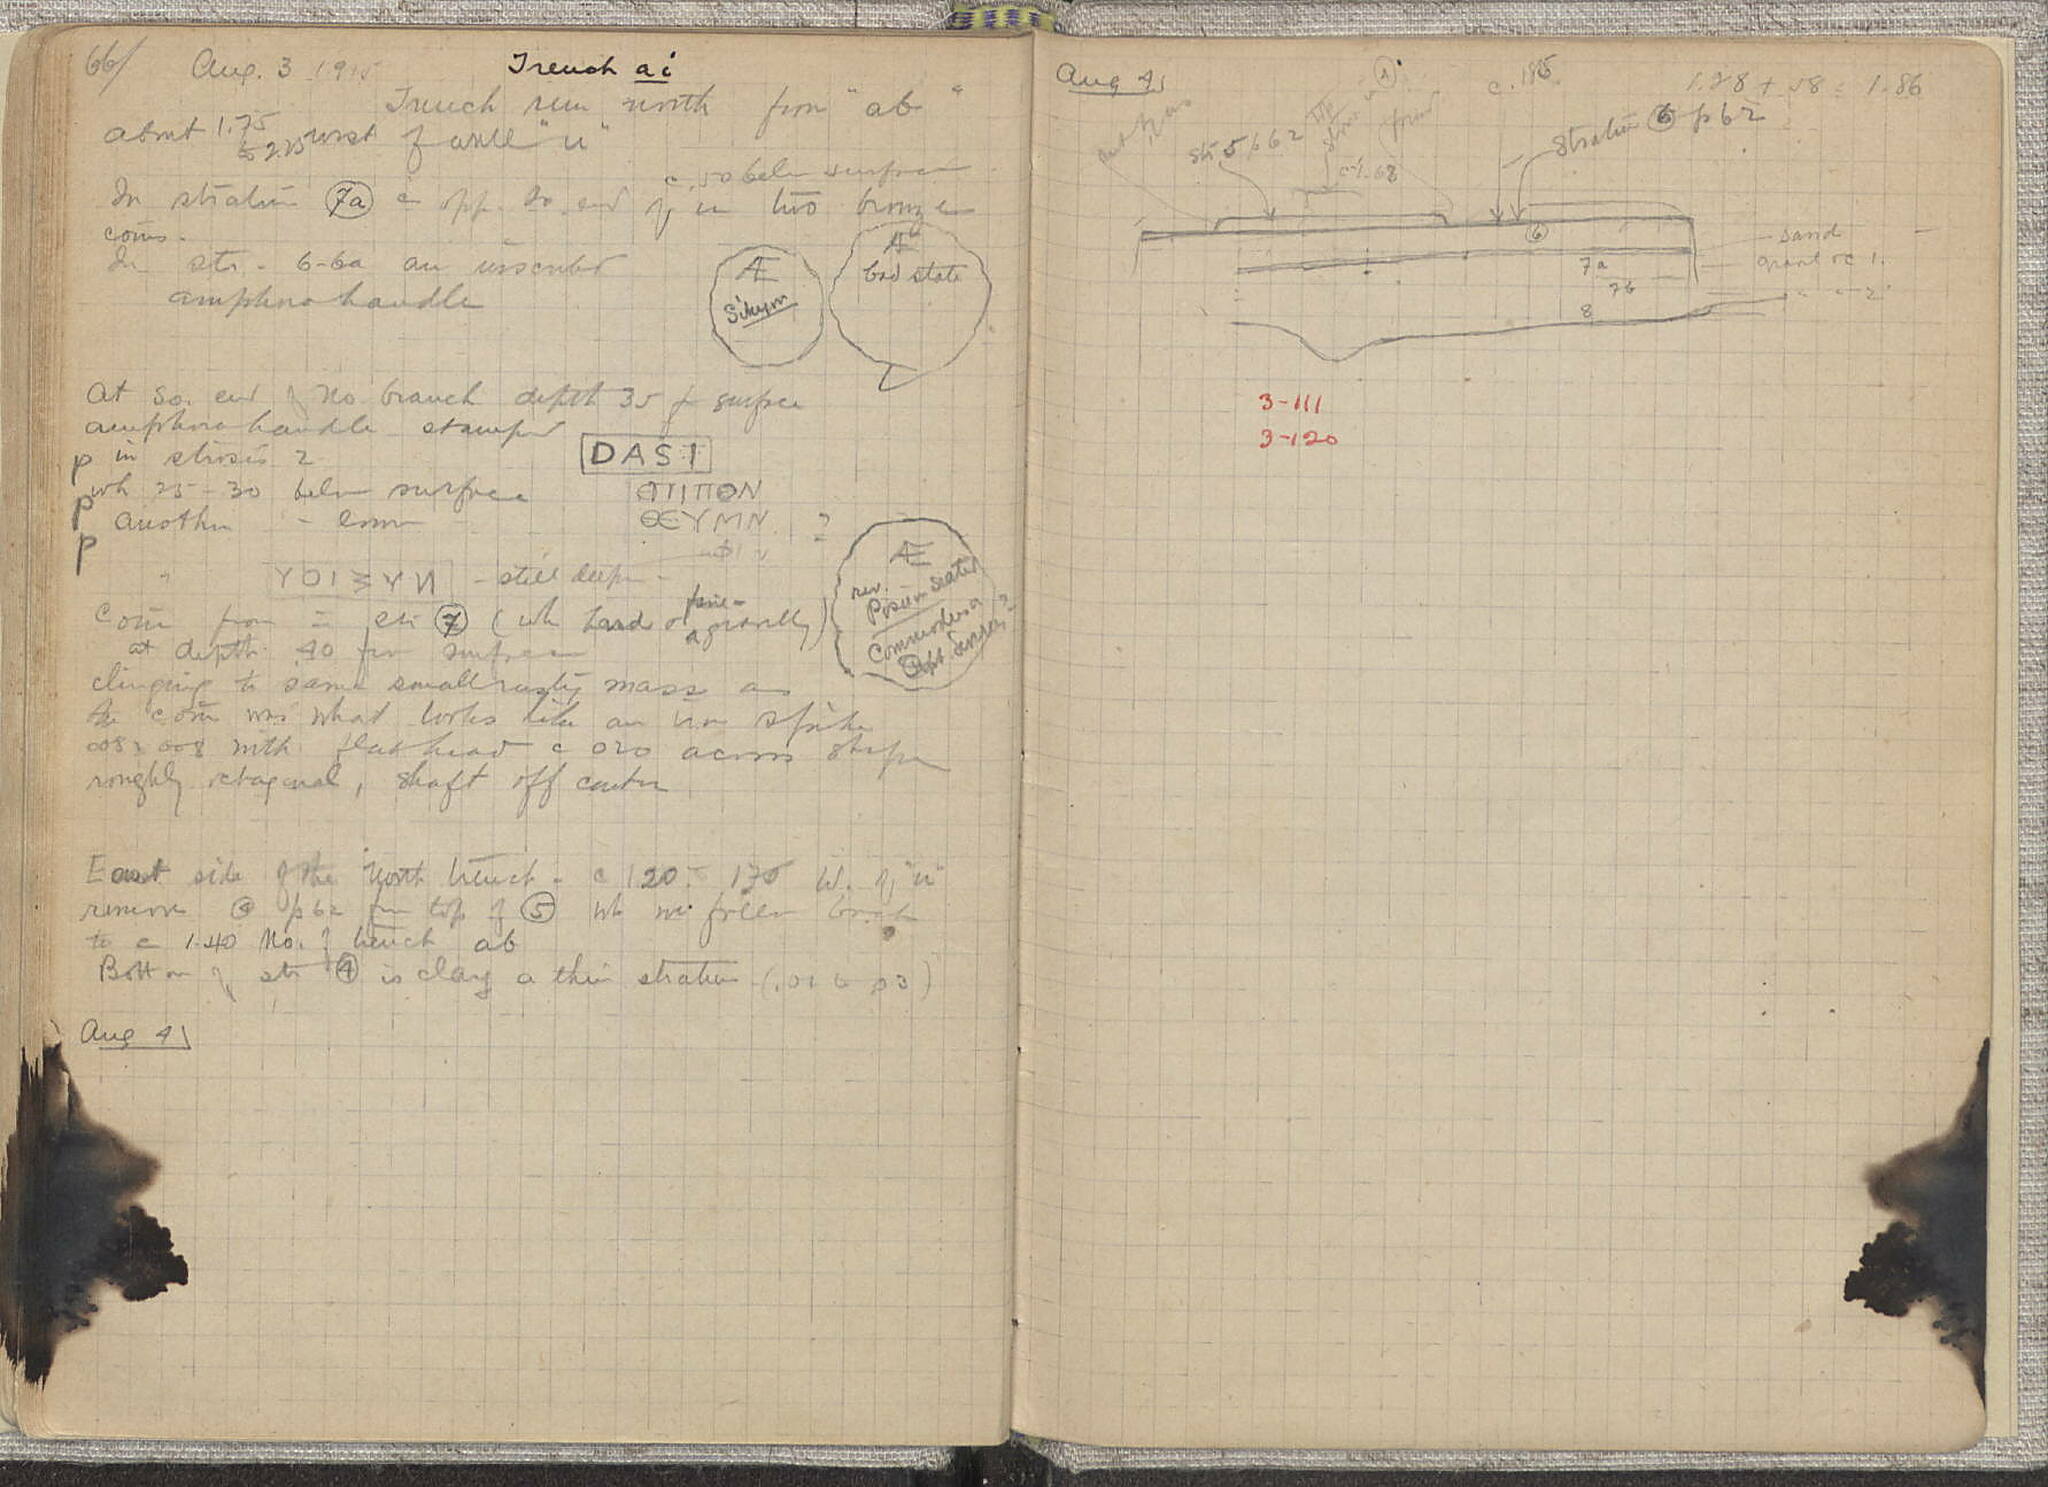 66/ Aug. 3 1915 Trench ai
Trench run north from "ab"
about 1.75 to 2.25 west of wall "u"
c. .50 below surface
In stratum 7a c opp. So. end of u two bronze
coins.
In str. 6-6a an inscribed
amphora handle
Æ
Sikyon
Æ
bad state
At So. end of No. branch depth 35 fr surface
amphora handle stamped
p in strosis 2 DASI
p wh 25-30 below surface ΠΙΠΟΝ
p another - ΘΕΥΜΝ ?
" - still deeper -
Coin from = str 7 (wh hard or fine-gravelly)
at depth .40 from surface
Æ
rev.
Poseidon seated
Commodus or
Sept. Severus?
clinging to same small rusty mass as
the coin was what looks like an iron spike
008 x 008 with flat head c 020 across shape
roughly octagonal, shaft off center
East side of the North trench - c 1.20 - 1.70 W. of "u"
remove 4 p 62 from top of 5 wh we follow back
to c 1.40 No. of trench ab
Bottom of str 4 is clay a thin stratum (.01 to .03)
Aug 4
Aug 4
1.28 + 58 = 1.86
str 5 p 62
Stratum 6 p 62
6
sand
7a
gravel
7b
8
3-111
3-120